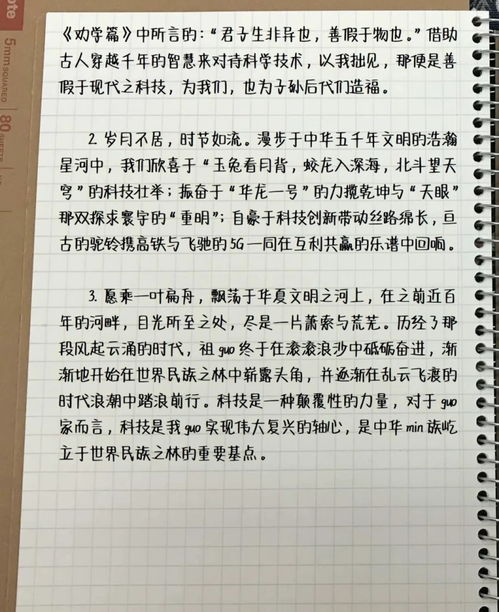 ote
5mm SQUARED
80
SHEETS
《劝学篇》中所言的：“君子生非异也，善假于物也。”借助
古人穿越千年的智慧来对待科学技术，以我拙见，那便是善
假于现代之科技，为我们，也为子孙后代们造福。
2. 岁月不居，时节如流。漫步于中华五千年文明的浩瀚
星河中，我们欣喜于“玉兔看月背，蛟龙入深海，北斗望天
穹”的科技壮举；振奋于“华龙一号”的力揽乾坤与“天眼”
那双探求寰宇的“重明”；自豪于科技创新带动丝路绵长，亘
古的驼铃携高铁与飞驰的5G一同在互利共赢的乐谱中回响。
3. 愿乘一叶扁舟，飘荡于华夏文明之河上，在之前近百
年的河畔，目光所至之处，尽是一片萧索与荒芜。历经了那
段风起云涌的时代，祖guo终于在滚滚浪沙中砥砺奋进，渐
渐地开始在世界民族之林中崭露头角，并逐渐在乱云飞渡的
时代浪潮中踏浪前行。科技是一种颠覆性的力量，对于guo
家而言，科技是我guo实现伟大复兴的轴心，是中华min族屹
立于世界民族之林的重要基点。